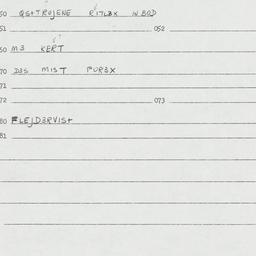 50 QS+TRUJENE RITLEX W BRD
51 052
60 M3 KERT
70 D3S MIST PUR3X
71
72 073
80 FLEJD3RVIS+
81